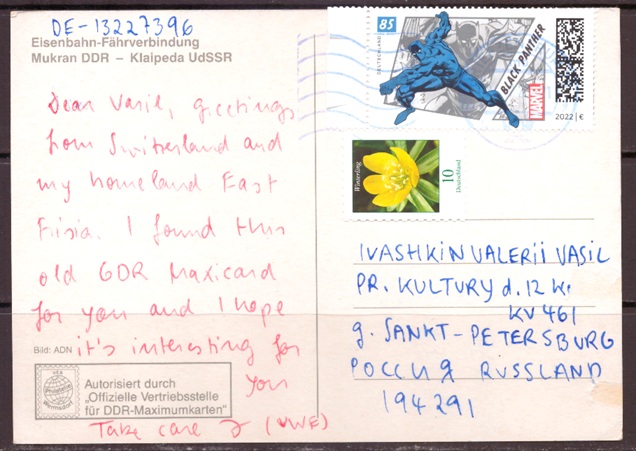 DE-13227396
Eisenbahn-Fährverbindung
Mukran DDR – Klaipeda UdSSR
Dear Vasil, greetings
from Switzerland and
my homeland East
Frisia. I found this
old GDR Maxicard
for you and I hope
it's interesting for
you
Take care (UWE)
Bild: ADN
Autorisiert durch
„Offizielle Vertriebsstelle
für DDR-Maximumkarten"
DEUTSCHLAND
85
BLACK PANTHER
MARVEL
2022 | €
Winterling
10
Deutschland
IVASHKIN VALERII VASIL
PR. KULTURY d. 12 k.
KV 461
g. SANKT-PETERSBURG
РОССИЯ RUSSLAND
194291